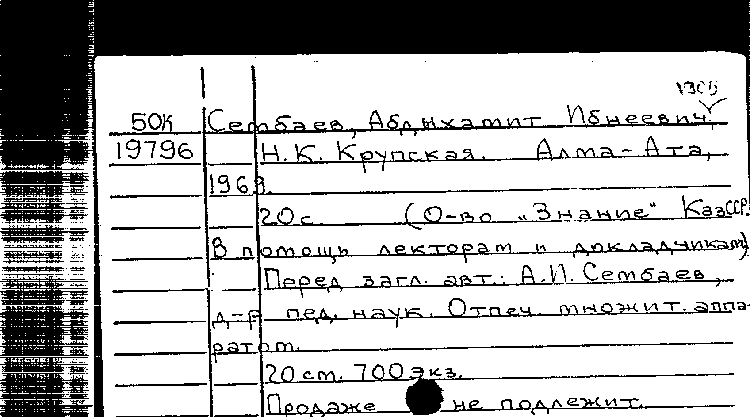 50К Сембаев, Абдыхамит Ибнеевич.
19796 Н.К. Крупская. Алма-Ата,
1969.
20 с (О-во „Знание" КазССР.
В помощь лекторам и докладчикам)
Перед загл. авт.: А.И. Сембаев,
д-р пед. наук. Отпеч. множит. аппа-
ратом.
20 см. 700 экз.
Продаже не подлежит.